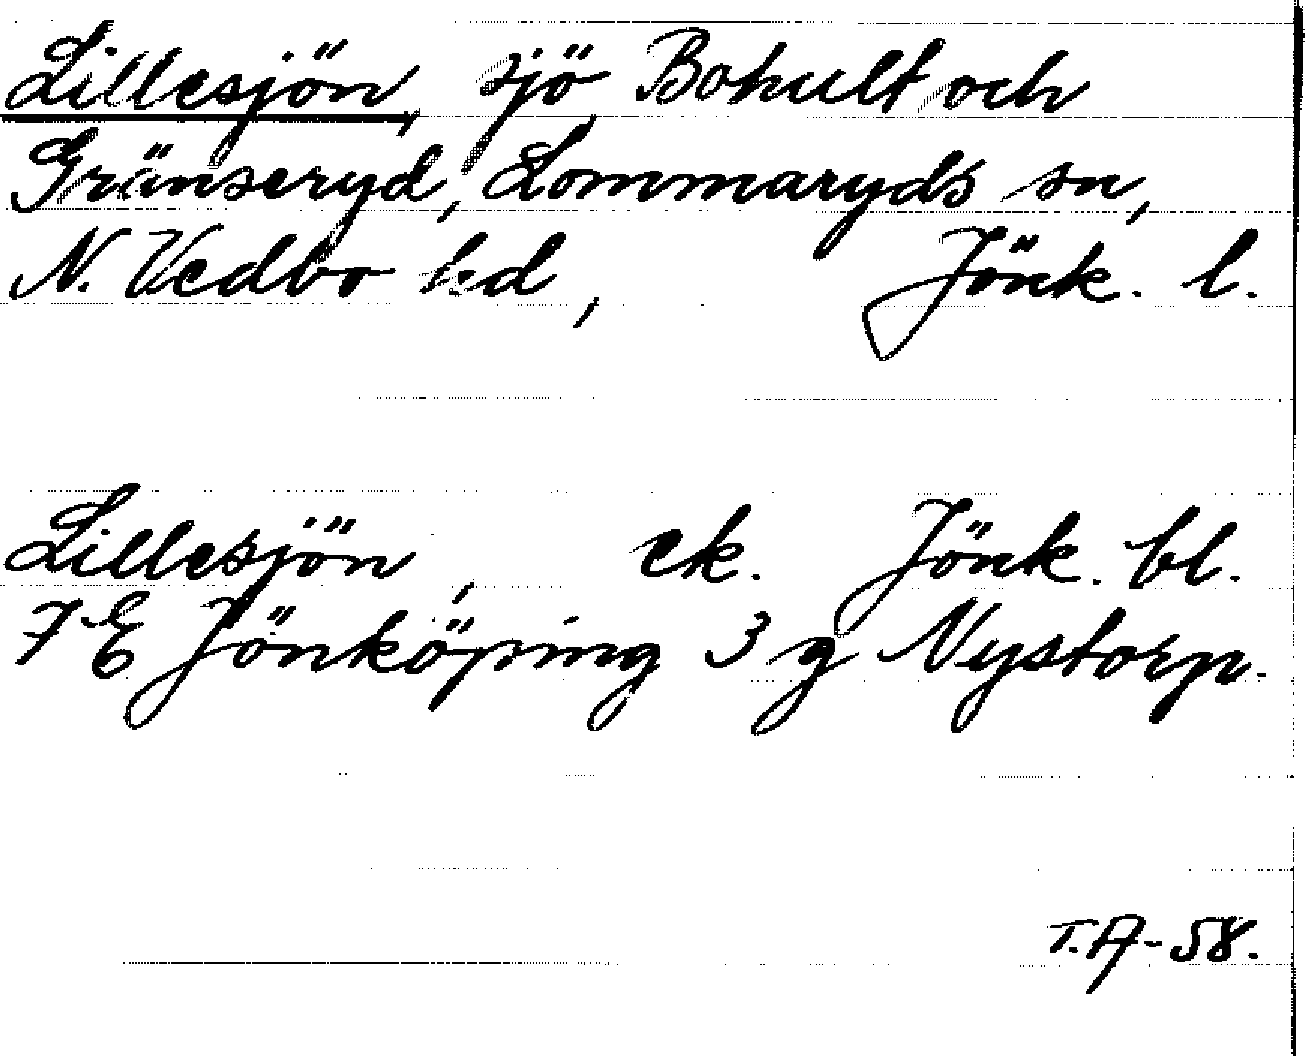 Lillesjön, sjö Bohult och
Gränseryd, Lommaryds sn,
N. Vedbo hd, Jönk. l.
Lillesjön, ek. Jönk. bl.
7 E Jönköping 3 g Nystorp.
T.A-58.